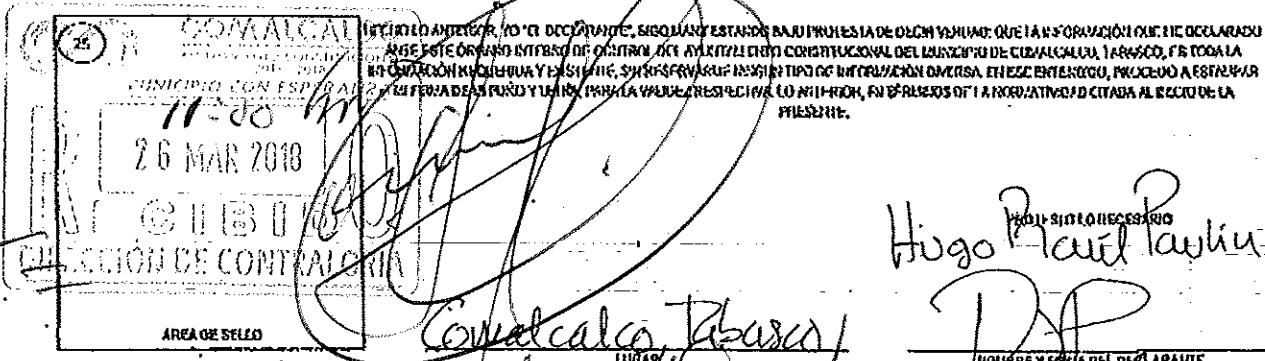 25
COMALCALCO
MUNICIPIO CON ESPERANZA
26 MAR 2018
RECIBIDO
DIRECCIÓN DE CONTRALORIA
AREA DE SELLO
LO ANTERIOR, YO "EL DECLARANTE", SIGO MANIFESTANDO BAJO PROTESTA DE DECIR VERDAD: QUE LA INFORMACIÓN QUE HE DECLARADO
ANTE ESTE ÓRGANO INTERNO DE CONTROL DEL AYUNTAMIENTO CONSTITUCIONAL DEL MUNICIPIO DE COMALCALCO, TABASCO, ES TODA LA
INFORMACIÓN REQUERIDA Y EXISTENTE, SIN RESERVARME NINGÚN TIPO DE INFORMACIÓN DIVERSA. EN ESE ENTENDIDO, PROCEDO A ESTAMPAR
LO ANTERIOR, EN TÉRMINOS DE LA NORMATIVIDAD CITADA AL RECTO DE LA
PRESENTE.
PROTESTO LO NECESARIO
Hugo Raúl Paulin
Comalcalco, Tabasco
LUGAR
NOMBRE Y FIRMA DEL DECLARANTE